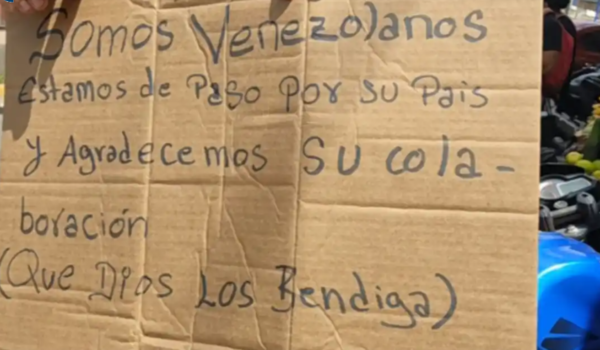 Somos Venezolanos
Estamos de Paso por su Pais
y Agradecemos su cola-
boración
(Que Dios Los Bendiga)